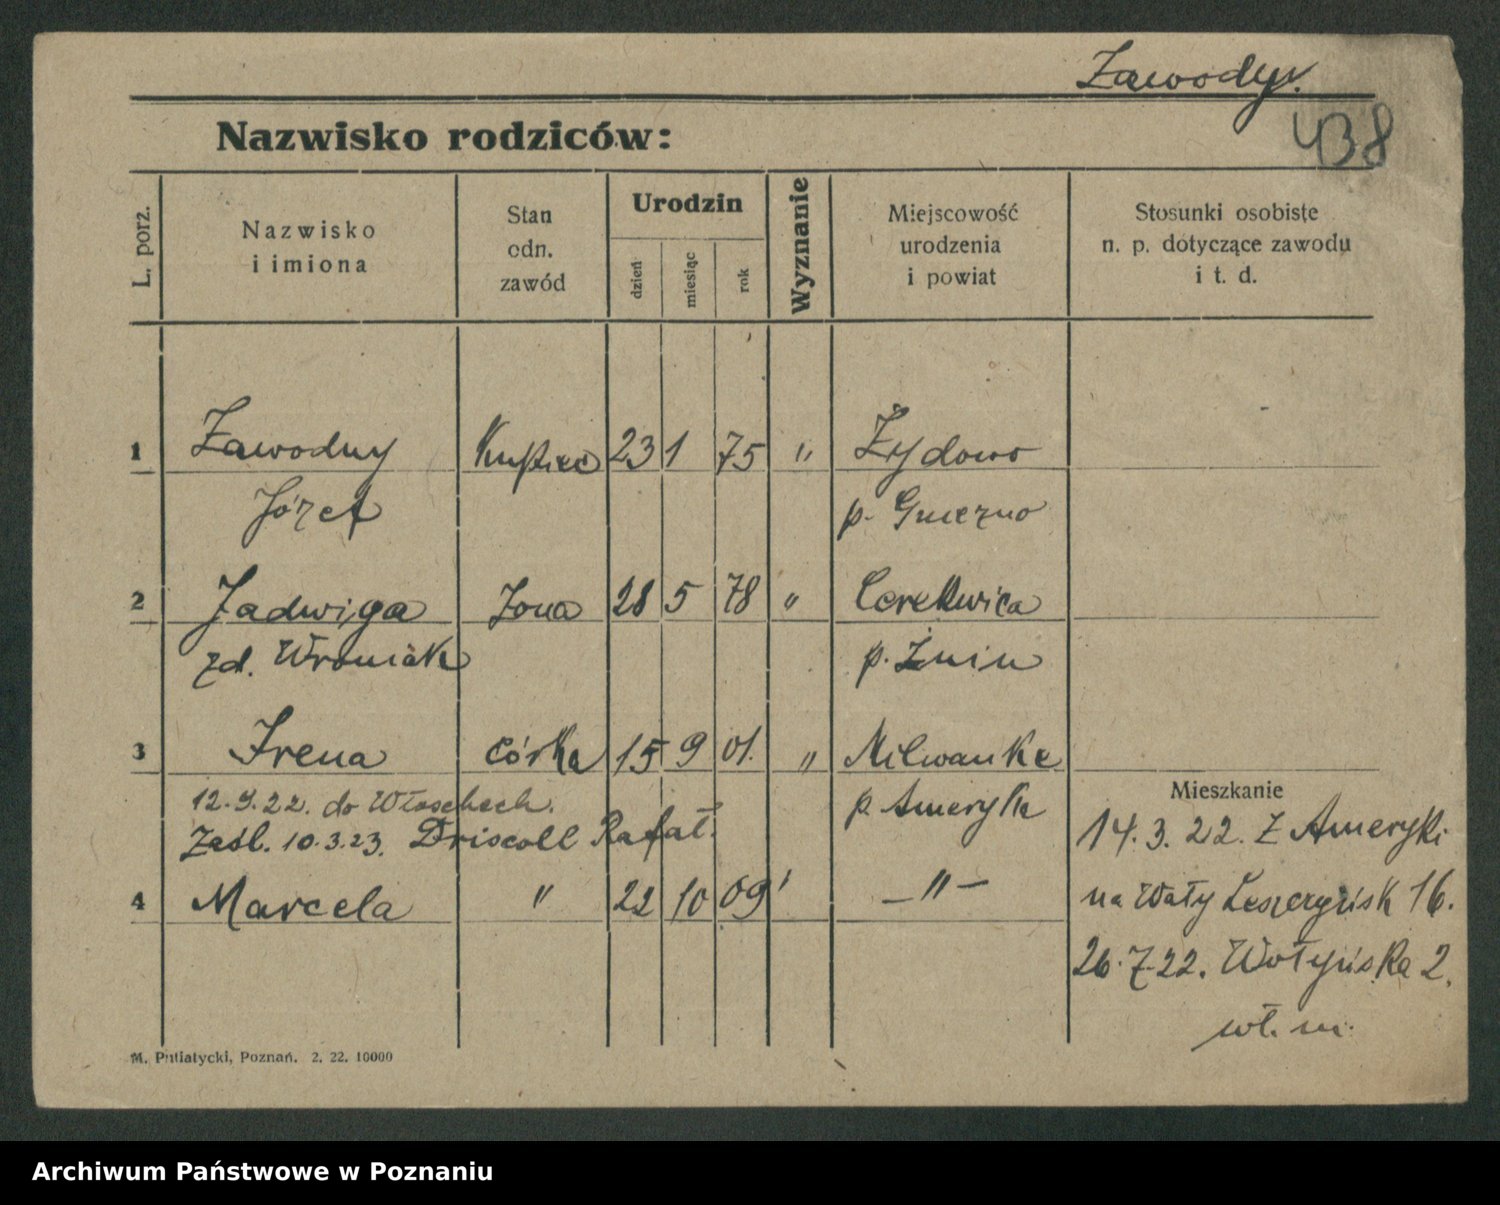 Zawodny.
438
Nazwisko rodziców:
L. porz.
Nazwisko
i imiona
Stan
odn.
zawód
Urodzin
dzień
miesiąc
rok
Wyznanie
Miejscowość
urodzenia
i powiat
Stosunki osobiste
n. p. dotyczące zawodu
i t. d.
1 Zawodny Kupiec 23 1 75 " Żydowo
Józef p. Gniezno
2 Jadwiga żona 28 5 78 " Cerekwica
zd. Wroniak p. Żnin
3 Irena córka 15 9 01. " Milwauke
12.9.22. do Włoschech. p. Ameryka
Zaśl. 10.3.23. Driscoll Rafał.
4 Marcela " 22 10 09 ' — " —
Mieszkanie
14.3.22. Z Ameryki
na Wały Leszczyńsk 16.
26.7.22. Wołyńska 2.
wł. m.
M. Putiatycki, Poznań. 2. 22. 10000
Archiwum Państwowe w Poznaniu